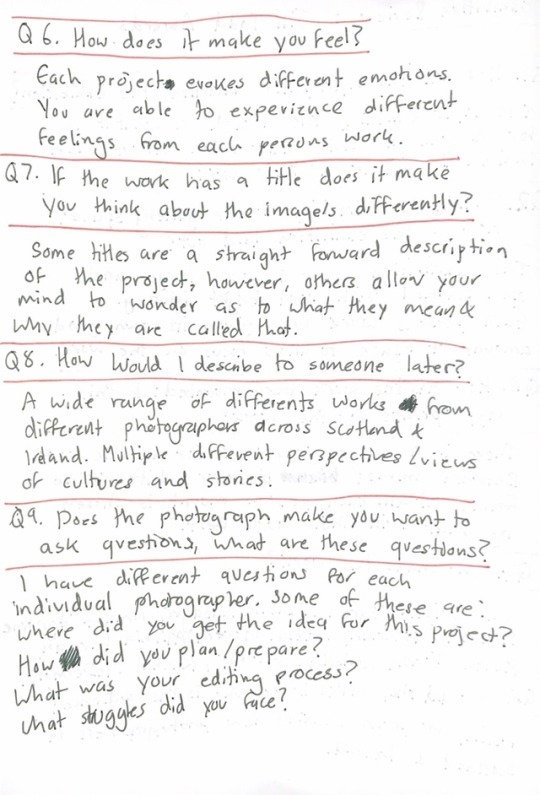 Q6. How does it make you feel?
Each project evokes different emotions.
You are able to experience different
feelings from each persons work.
Q7. If the work has a title does it make
you think about the image/s differently?
Some titles are a straight forward description
of the project, however, others allow your
mind to wonder as to what they mean &
why they are called that.
Q8. How would I describe to someone later?
A wide range of differents works from
different photographers across Scotland &
Ireland. Multiple different perspectives/views
of cultures and stories.
Q9. Does the photograph make you want to
ask questions, what are these questions?
I have different questions for each
individual photographer. Some of these are:
Where did you get the idea for this project?
How did you plan/prepare?
What was your editing process?
What stuggles did you face?